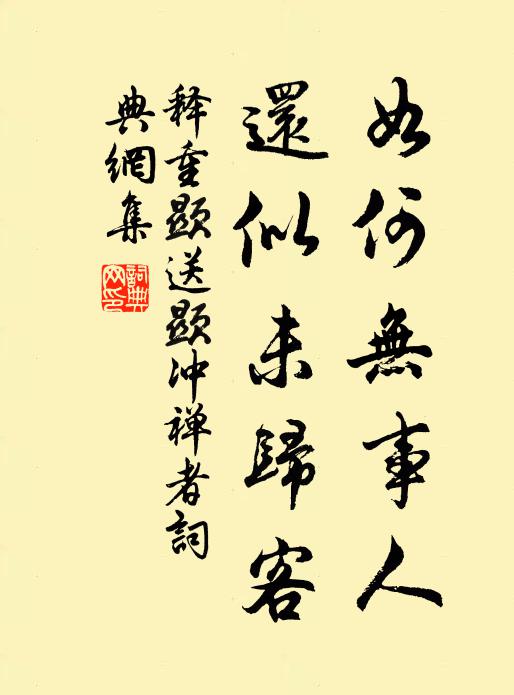 如何無事人
還似未歸客
释重顯送顯冲禅者詞
典網集
詞典网印